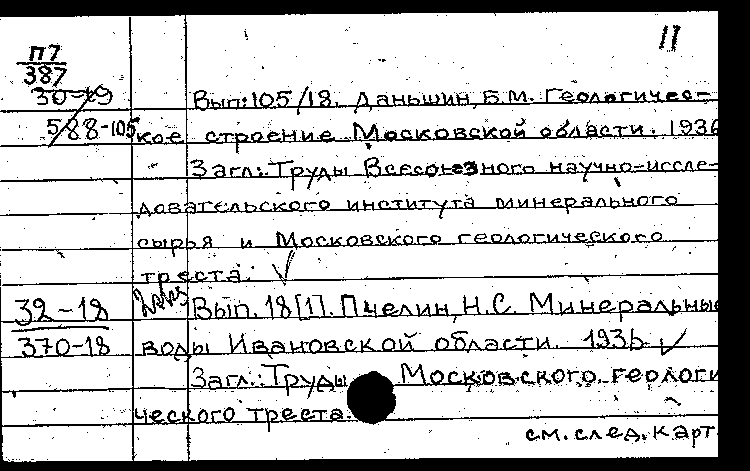 11
П7
387
30-19
Вып.105/18. Даньшин, Б.М. Геологичес-
588-105
кое строение Московской области. 1936
Загл.: Труды Всесоюзного научно-иссле-
довательского института минерального
сырья и Московского геологического
треста.
32-18
Вып. 18[1]. Пчелин, Н.С. Минеральные
370-18
воды Ивановской области. 1936
Загл.: Труды Московского геологи
ческого треста.
см. след. карт